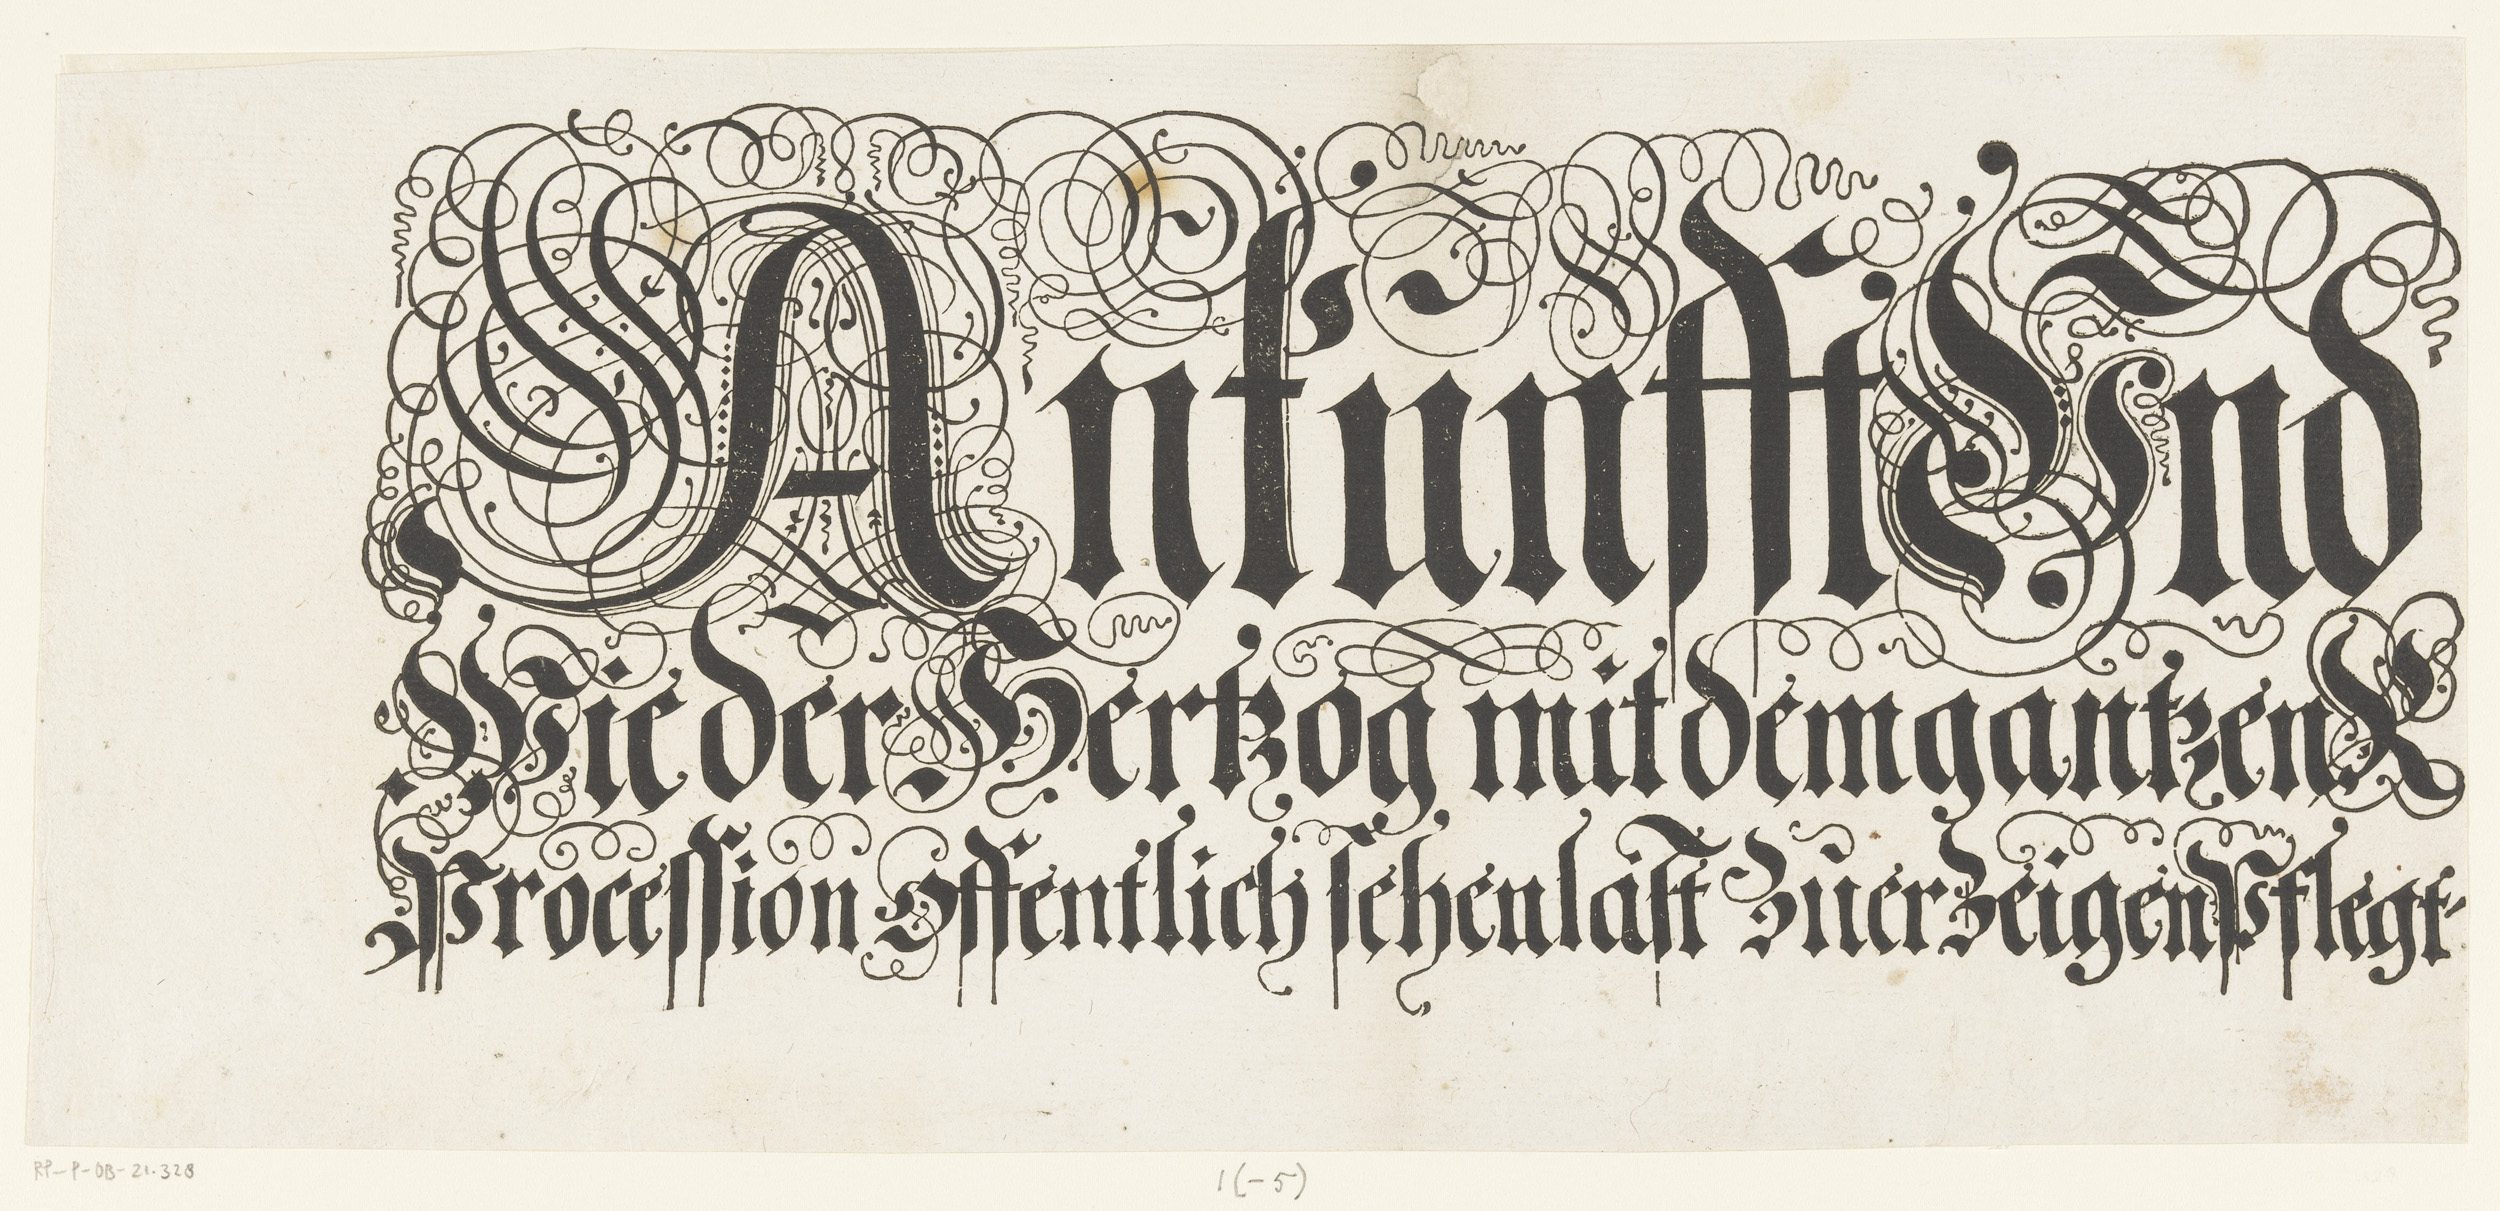 Ankunfft Vnd
Wie der Hertzog mit dem gantzen K
Procession Offentlich sehen läſt Zu erzeigen Pflegt.
RP-P-OB-21.328
1(-5)